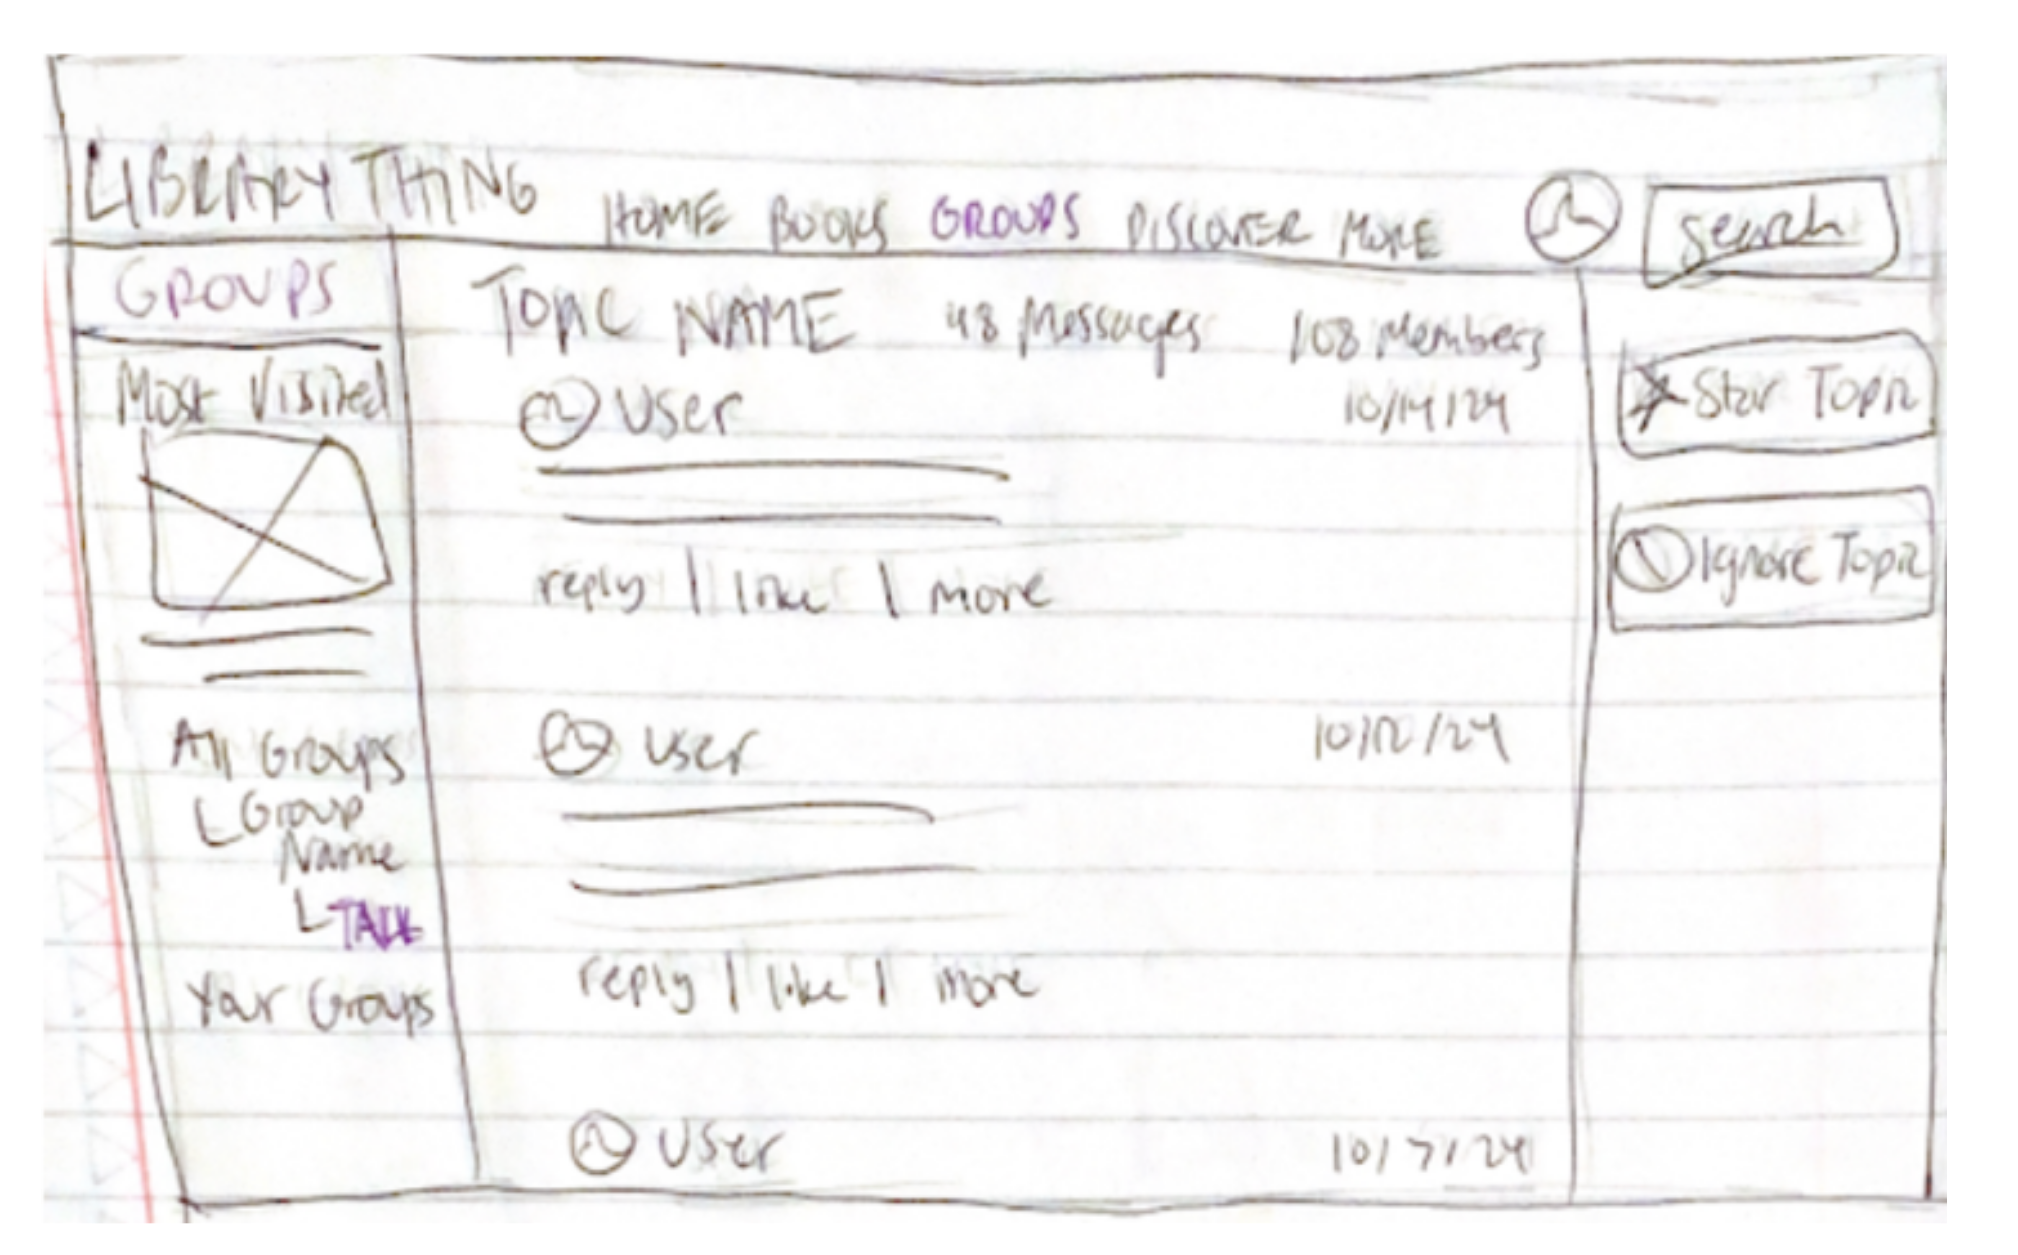 LIBRARY THING HOME BOOKS GROUPS DISCOVER MORE search
GROUPS
Most Visited
All Groups
Group
Name
TALK
Your Groups
TOPIC NAME 48 Messages 108 Members
User 10/14/24
reply | like | more
User 10/12/24
reply | like | more
User 10/7/24
Star Topic
Ignore Topic